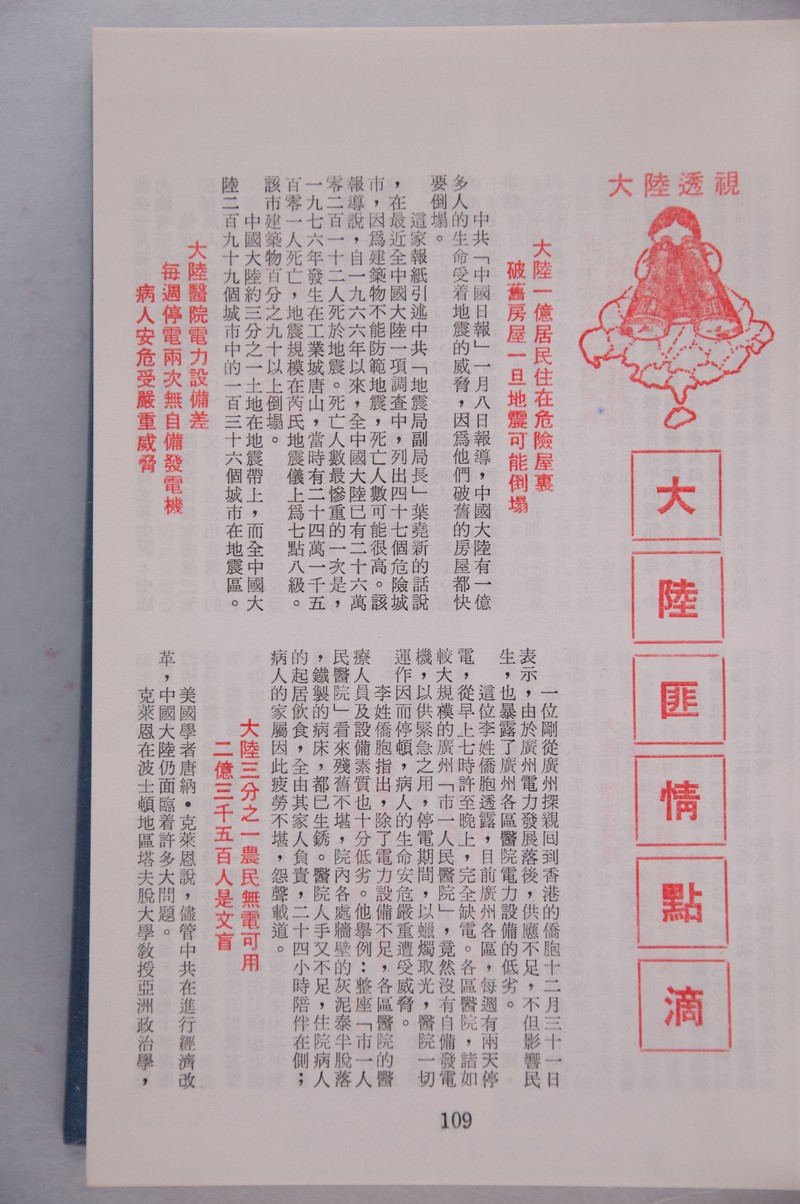 大陸透視
大陸匪情點滴
大陸一億居民住在危險屋裏
破舊房屋一旦地震可能倒塌
中共「中國日報」一月八日報導，中國大陸有一億
多人的生命受着地震的威脅，因爲他們破舊的房屋都快
要倒塌。
這家報紙引述中共「地震局副局長」葉堯新的話說
，在最近全中國大陸一項調查中，列出四十七個危險城
市，因爲建築物不能防範地震，死亡人數可能很高。該
報導說，自一九六六年以來，全中國大陸已有二十六萬
零二百一十二人死於地震。死亡人數最慘重的一次是，
一九七六年發生在工業城唐山，當時有二十四萬一千五
百零一人死亡，地震規模在芮氏地震儀上爲七點八級。
該市建築物百分之九十以上倒塌。
中國大陸約三分之一土地在地震帶上，而全中國大
陸二百九十九個城市中的一百三十六個城市在地震區。
大陸醫院電力設備差
每週停電兩次無自備發電機
病人安危受嚴重威脅
一位剛從廣州探親囘到香港的僑胞十二月三十一日
表示，由於廣州電力發展落後，供應不足，不但影響民
生，也暴露了廣州各區醫院電力設備的低劣。
這位李姓僑胞透露，目前廣州各區，每週有兩天停
電，從早上七時許至晚上，完全缺電。各區醫院，諸如
較大規模的廣州「市一人民醫院」，竟然沒有自備發電
機，以供緊急之用，停電期間，以蠟燭取光，醫院一切
運作因而停頓，病人的生命安危嚴重遭受威脅。
李姓僑胞指出，除了電力設備不足，各區醫院的醫
療人員及設備素質也十分低劣。他舉例：整座「市一人
民醫院」看來殘舊不堪，院內各處牆壁的灰泥泰半脫落
，鐵製的病床，都已生銹。醫院人手又不足，住院病人
的起居飲食，全由其家人負責，二十四小時陪伴在側；
病人的家屬因此疲勞不堪，怨聲載道。
大陸三分之一農民無電可用
二億三千五百人是文盲
美國學者唐納•克萊恩說，儘管中共在進行經濟改
革，中國大陸仍面臨着許多大問題。
克萊恩在波士頓地區塔夫脫大學教授亞洲政治學，
109